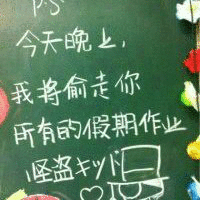 P.S
今天晚上,
我将偷走你
所有的假期作业
怪盗キッド